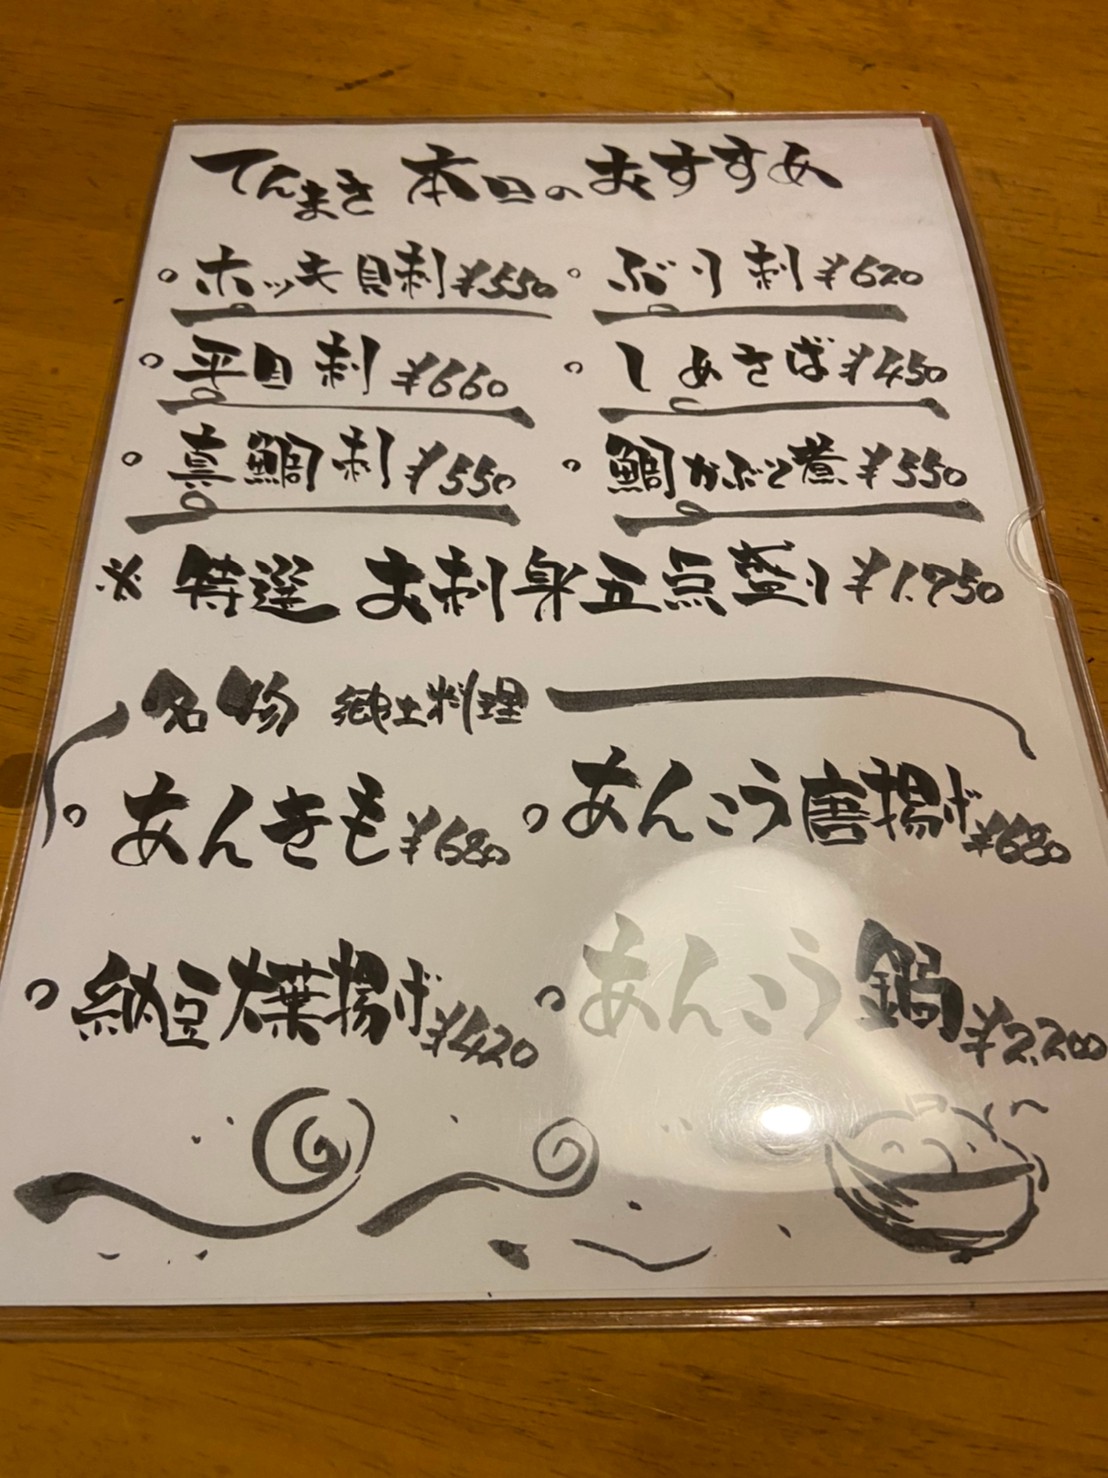 てんまさ 本日のおすすめ
○ ホッキ貝刺 ¥550 ○ ぶり刺 ¥620
○ 平目刺 ¥660 ○ しめさば ¥450
○ 真鯛刺 ¥550 ○ 鯛かぶと煮 ¥550
※ 特選 お刺身五点盛り ¥1.750
名物 郷土料理
○ あんきも ¥680 ○ あんこう唐揚げ ¥680
○ 納豆大葉揚げ ¥420 ○ あんこう鍋 ¥2.200